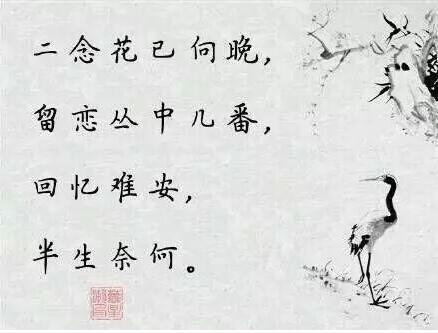 二念花已向晚，
留恋丛中几番，
回忆难安，
半生奈何。